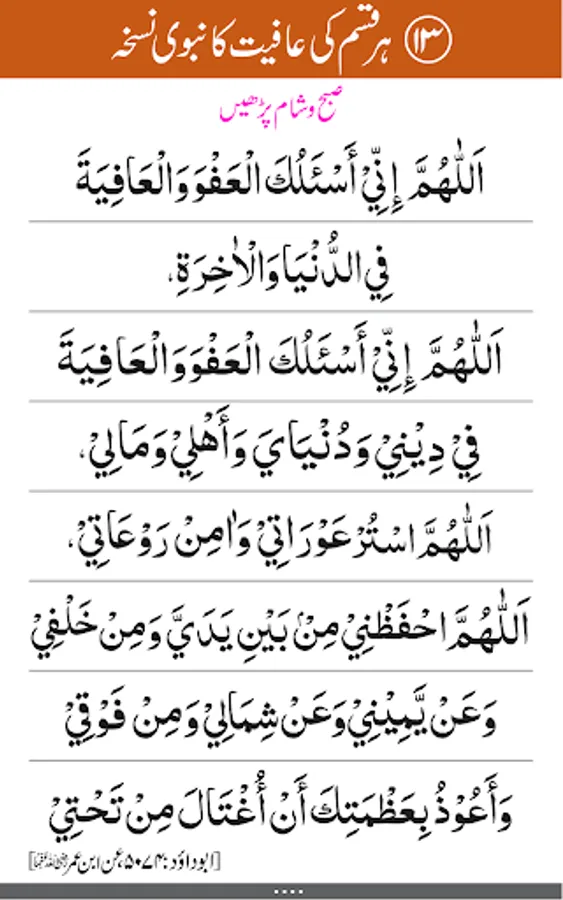 ۱۳ ہر قسم کی عافیت کا نبوی نسخہ
صبح و شام پڑھیں
اَللّٰهُمَّ إِنِّيْ أَسْئَلُكَ الْعَفْوَ وَالْعَافِيَةَ
فِي الدُّنْيَا وَالْاٰخِرَةِ،
اَللّٰهُمَّ إِنِّيْ أَسْئَلُكَ الْعَفْوَ وَالْعَافِيَةَ
فِيْ دِيْنِيْ وَدُنْيَايَ وَأَهْلِيْ وَمَالِيْ،
اَللّٰهُمَّ اسْتُرْ عَوْرَاتِيْ وَاٰمِنْ رَوْعَاتِيْ،
اَللّٰهُمَّ احْفَظْنِيْ مِنْۢ بَيْنِ يَدَيَّ وَمِنْ خَلْفِيْ
وَعَنْ يَّمِيْنِيْ وَعَنْ شِمَالِيْ وَمِنْ فَوْقِيْ
وَأَعُوْذُ بِعَظَمَتِكَ أَنْ أُغْتَالَ مِنْ تَحْتِيْ
[ابوداؤد: ۵۰۷۴، عن ابن عمر رضی اللہ عنہما]